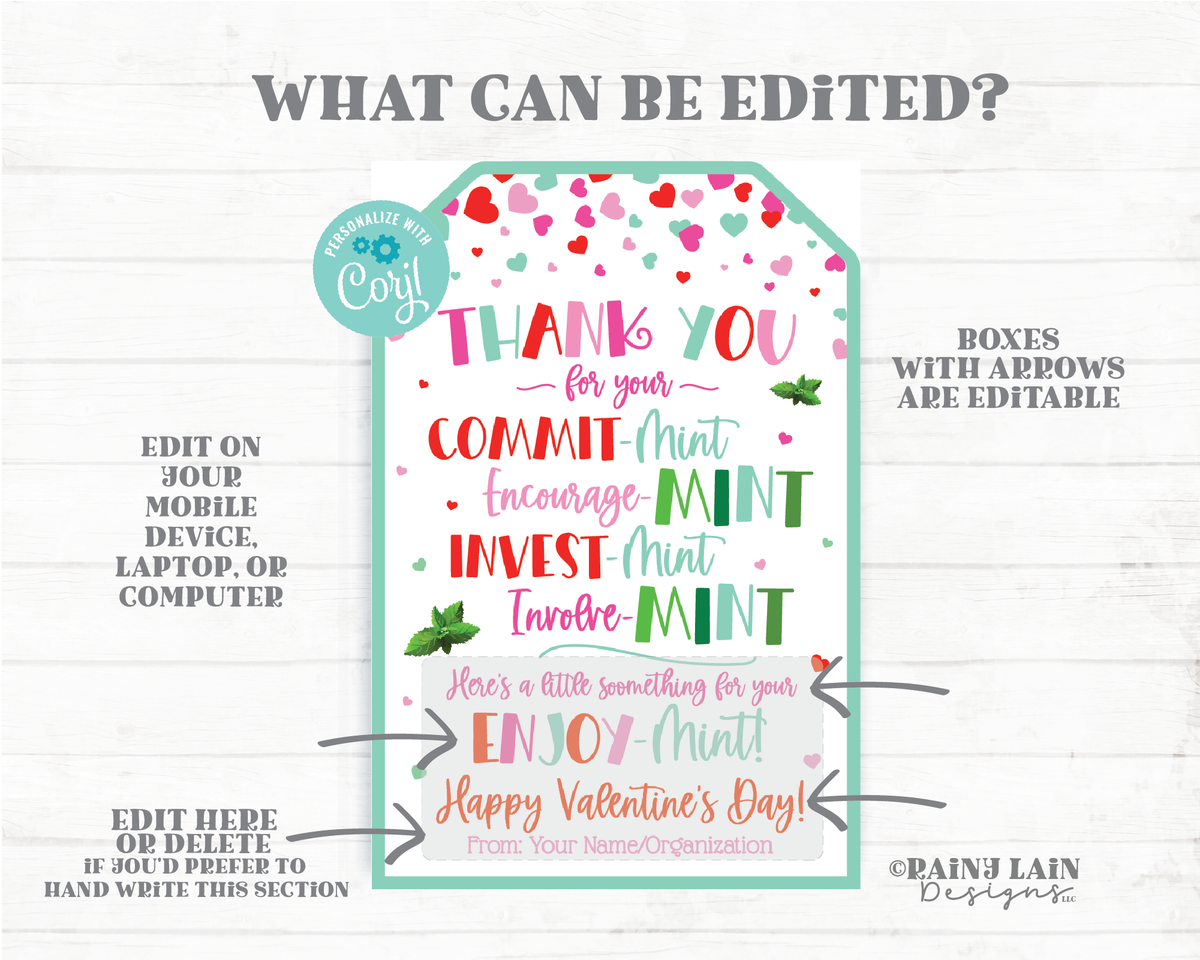 WHAT CAN BE EDiTED?
PERSONALIZE WITH
Corjl
THANK YOU
for your
COMMIT-Mint
Encourage-MINT
INVEST-Mint
Involve-MINT
Here's a little soomething for your
ENJOY-Mint!
Happy Valentine's Day!
From: Your Name/Organization
BOXES
WiTH ARROWS
ARE EDiTABLE
EDIT ON
YOUR
MOBiLE
DEViCE,
LAPTOP, OR
COMPUTER
EDIT HERE
OR DELETE
iF YOU'D PREFER TO
HAND WRiTE THiS SECTiON
©RAiNY LAiN
Designs LLC